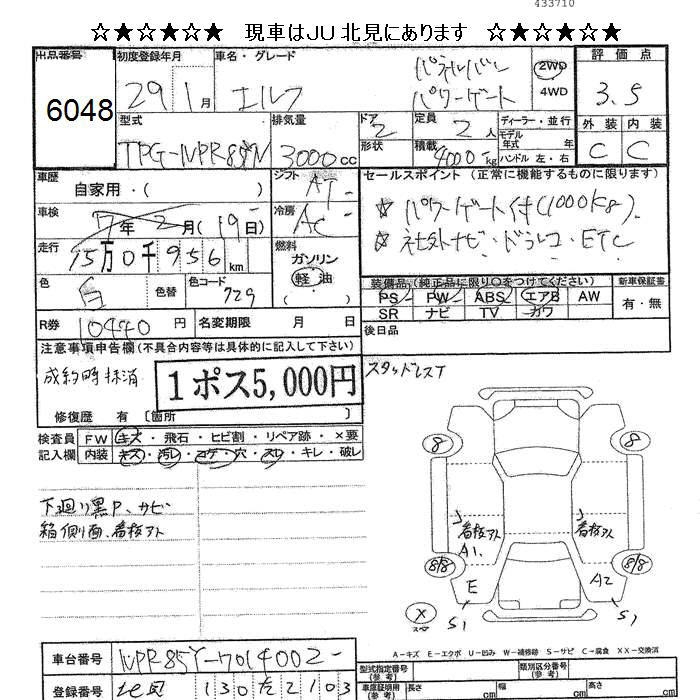 433710
☆★☆★☆★ 現車はJU北見にあります ☆★☆★☆★
出品番号 初度登録年月 車名・グレード 評価点
6048 29 1月 エルフ パネルバン パワーゲート 2WD 4WD 3.5
型式 排気量 ドア 定員 ディーラー・並行 外装 内装
TPG-NPR85YN 3000cc 2 2人 モデル年式 年 C C
形状 積載 4000-kg ハンドル 左・右
車歴 自家用・( ) シフト AT- セールスポイント (正常に機能するものに限ります)
車検 7年2月(19日) 冷房 AC- ☆パワーゲート付(1000kg).
☆社外ナビ・ドラレコ・ETC
走行 15万0千956km 燃料 ガソリン 軽油 ( )
装備品 (純正品に限り○をつけてください) 新車保証書
色 白 色替 色コード 729 PS PW ABS エアB AW 有・無
SR ナビ TV カワ
R券 10440円 名変期限 月 日 後日品
注意事項申告欄(不具合内容等は具体的に記入して下さい)
成約時抹消 1ポス5,000円 スタッドレスT
修復歴 有 〔箇所
検査員 FW キズ・飛石・ヒビ割・リペア跡・×要
記入欄 内装 キズ・汚レ・コゲ・穴・スレ・キレ・破レ
8 8
下廻り黒P、サビ
箱側面、看板アト
看板アト 看板アト
A1. 8/8 8/8
E A2
X S1 S1
A-キズ E-エクボ U-凹み W-補修跡 S-サビ C-腐食 XX-交換済
車台番号 NPR85Y-7014002- 型式指定番号(参考) 類別区分番号(参考)
登録番号 北見 130た2103 車庫証明用(参考) 長さ cm 幅 cm 高さ cm